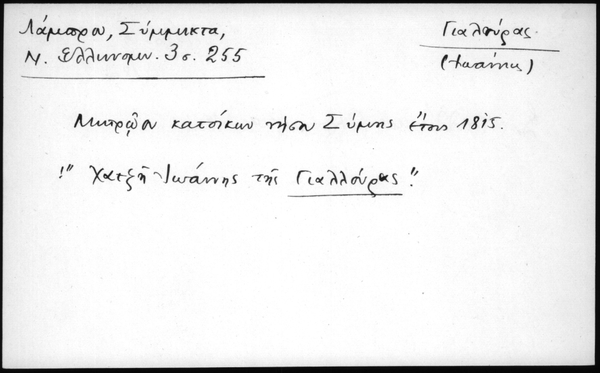 Λάμπρου, Σύμμικτα,
Ν. Ελληνομν. 3 σ. 255
Γιαλούρας
(Ιωάννης)
Μητρῷον κατοίκων νήσου Σύμης ἔτους 1815.
!" Χατζῆ-Ιωάννης τῆς Γιαλλούρας".